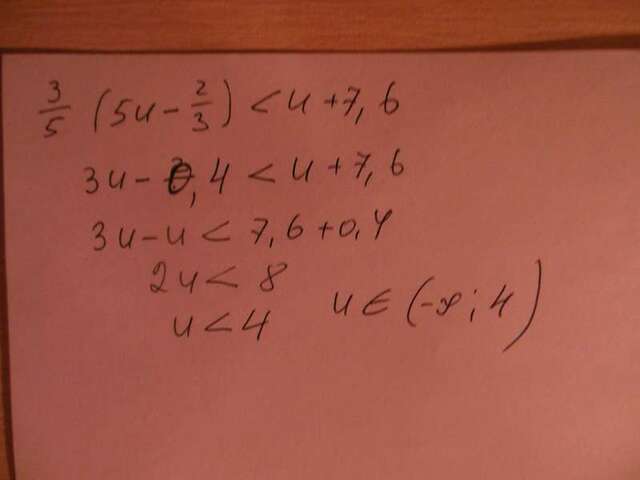 3/5 (5u - 2/3) < u + 7,6
3u - 0,4 < u + 7,6
3u - u < 7,6 + 0,4
2u < 8
u < 4 u ∈ (-∞; 4)